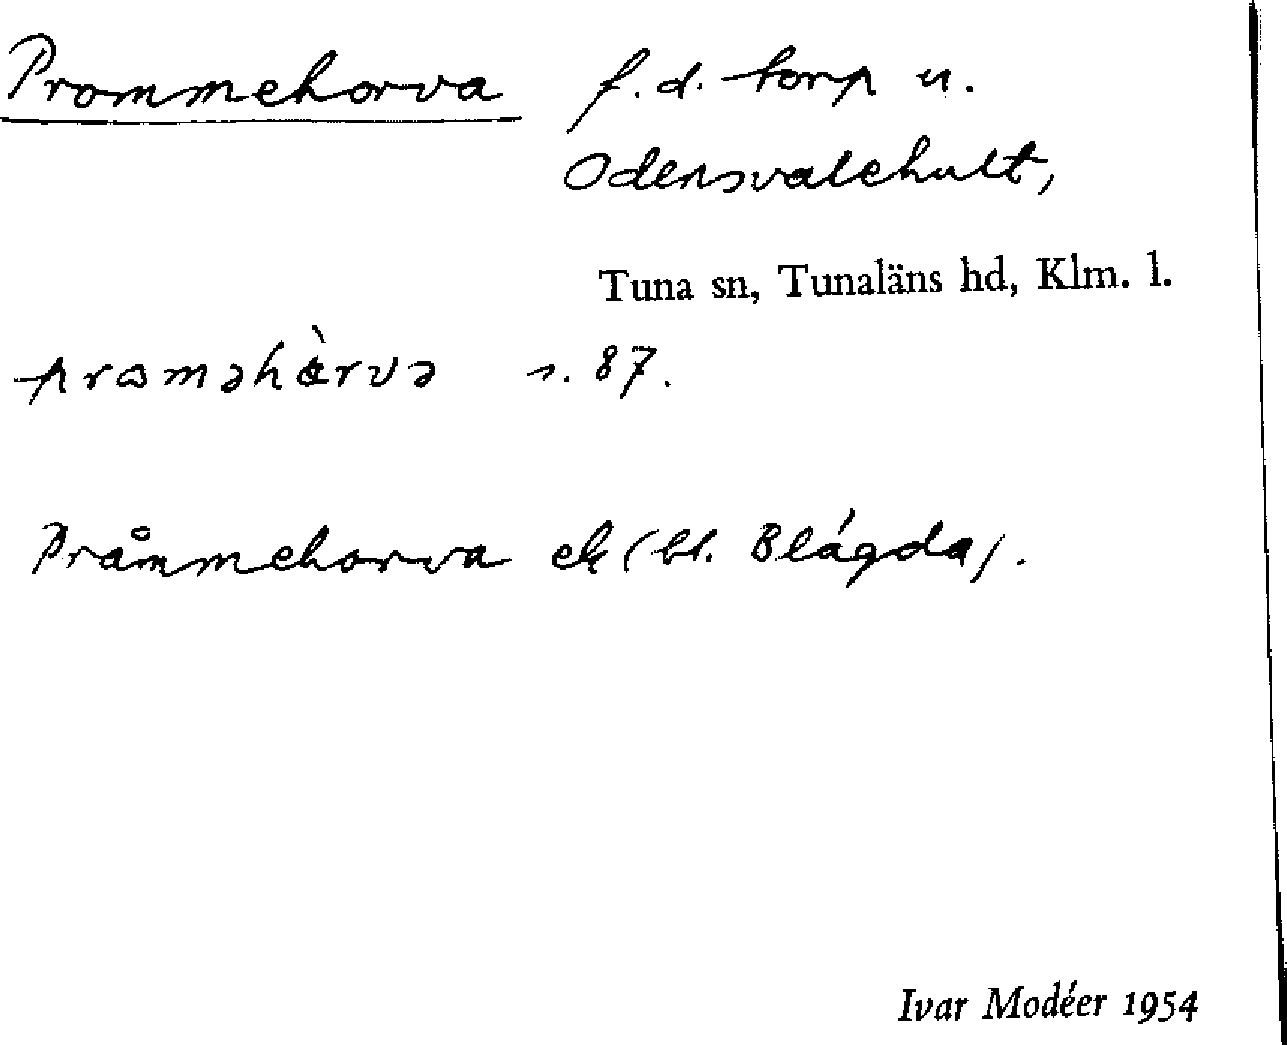 Prommehorva f. d. torp u.
Odensvalehult,
Tuna sn, Tunaläns hd, Klm. l.
proməhàrvə s. 87.
Pråmmehorva ek (bl. Blågda).
Ivar Modéer 1954